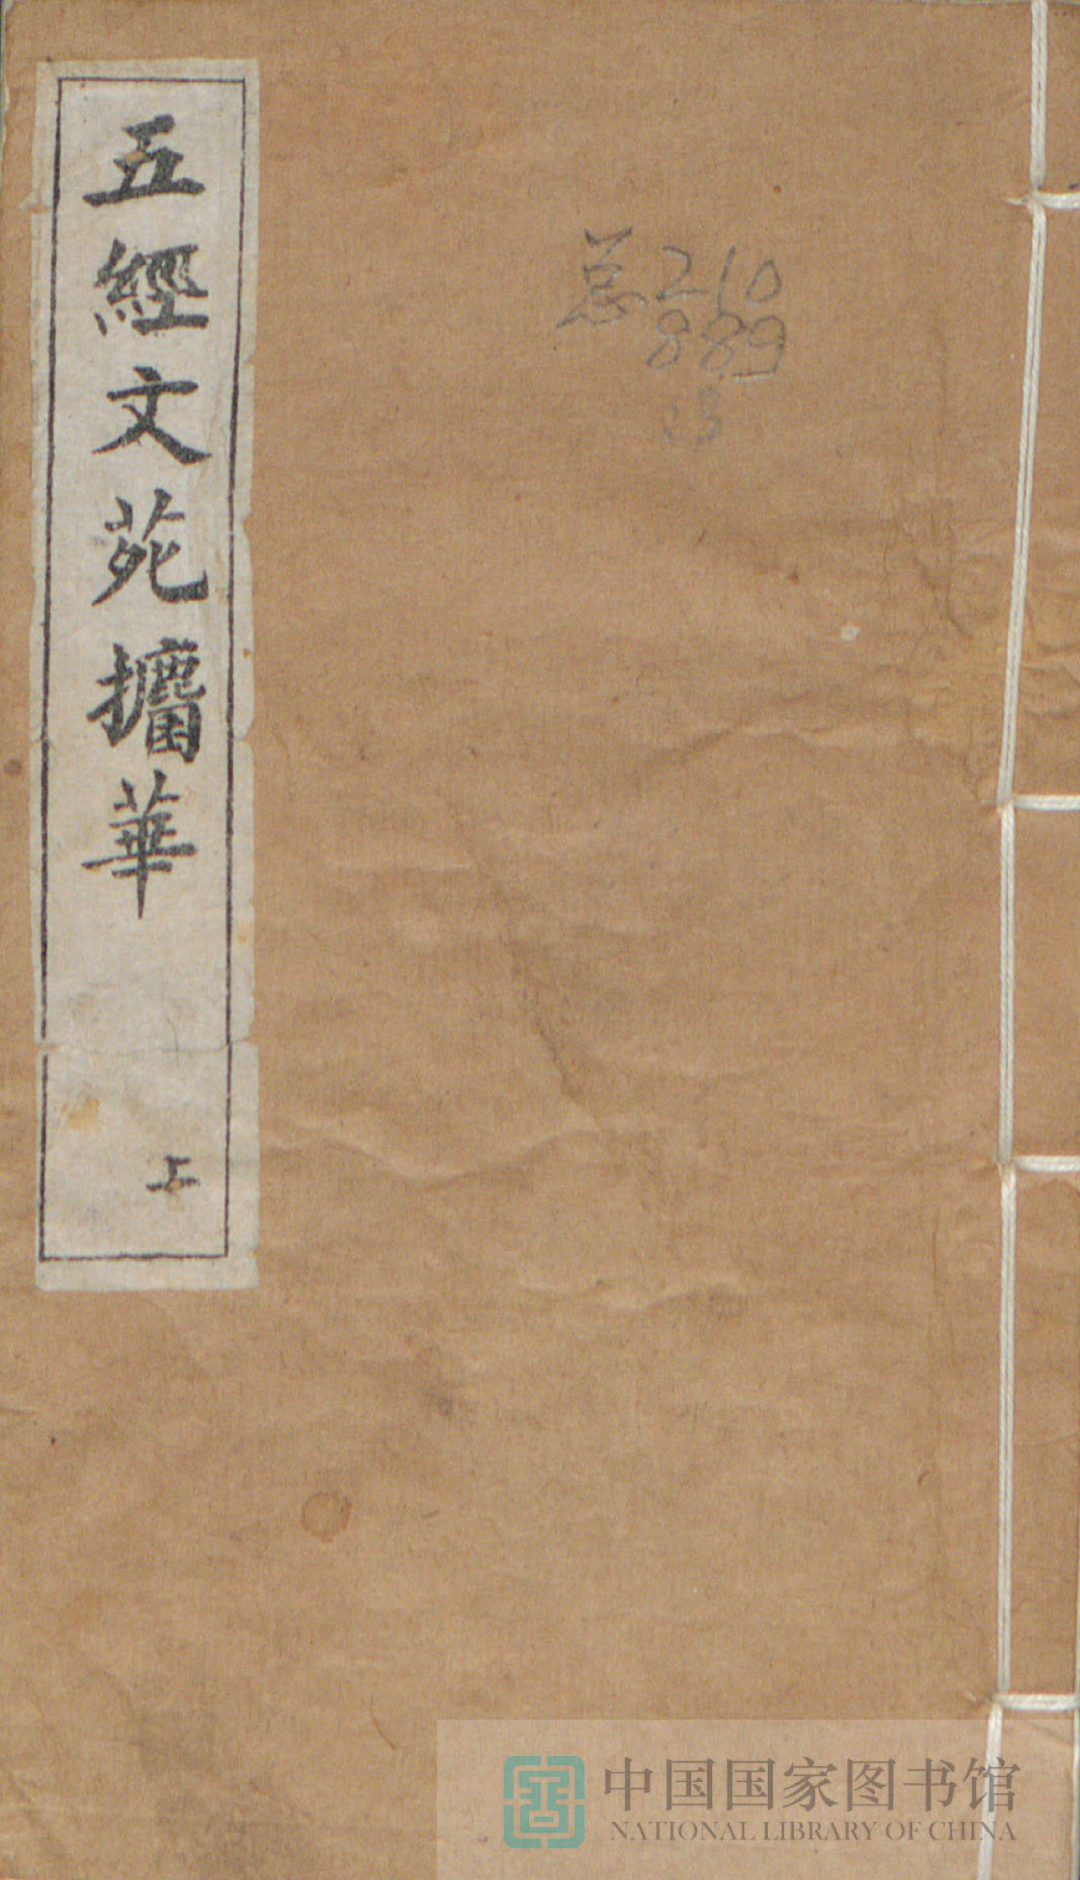 五經文苑攟華
上
总210
889
13
中国国家图书馆
NATIONAL LIBRARY OF CHINA